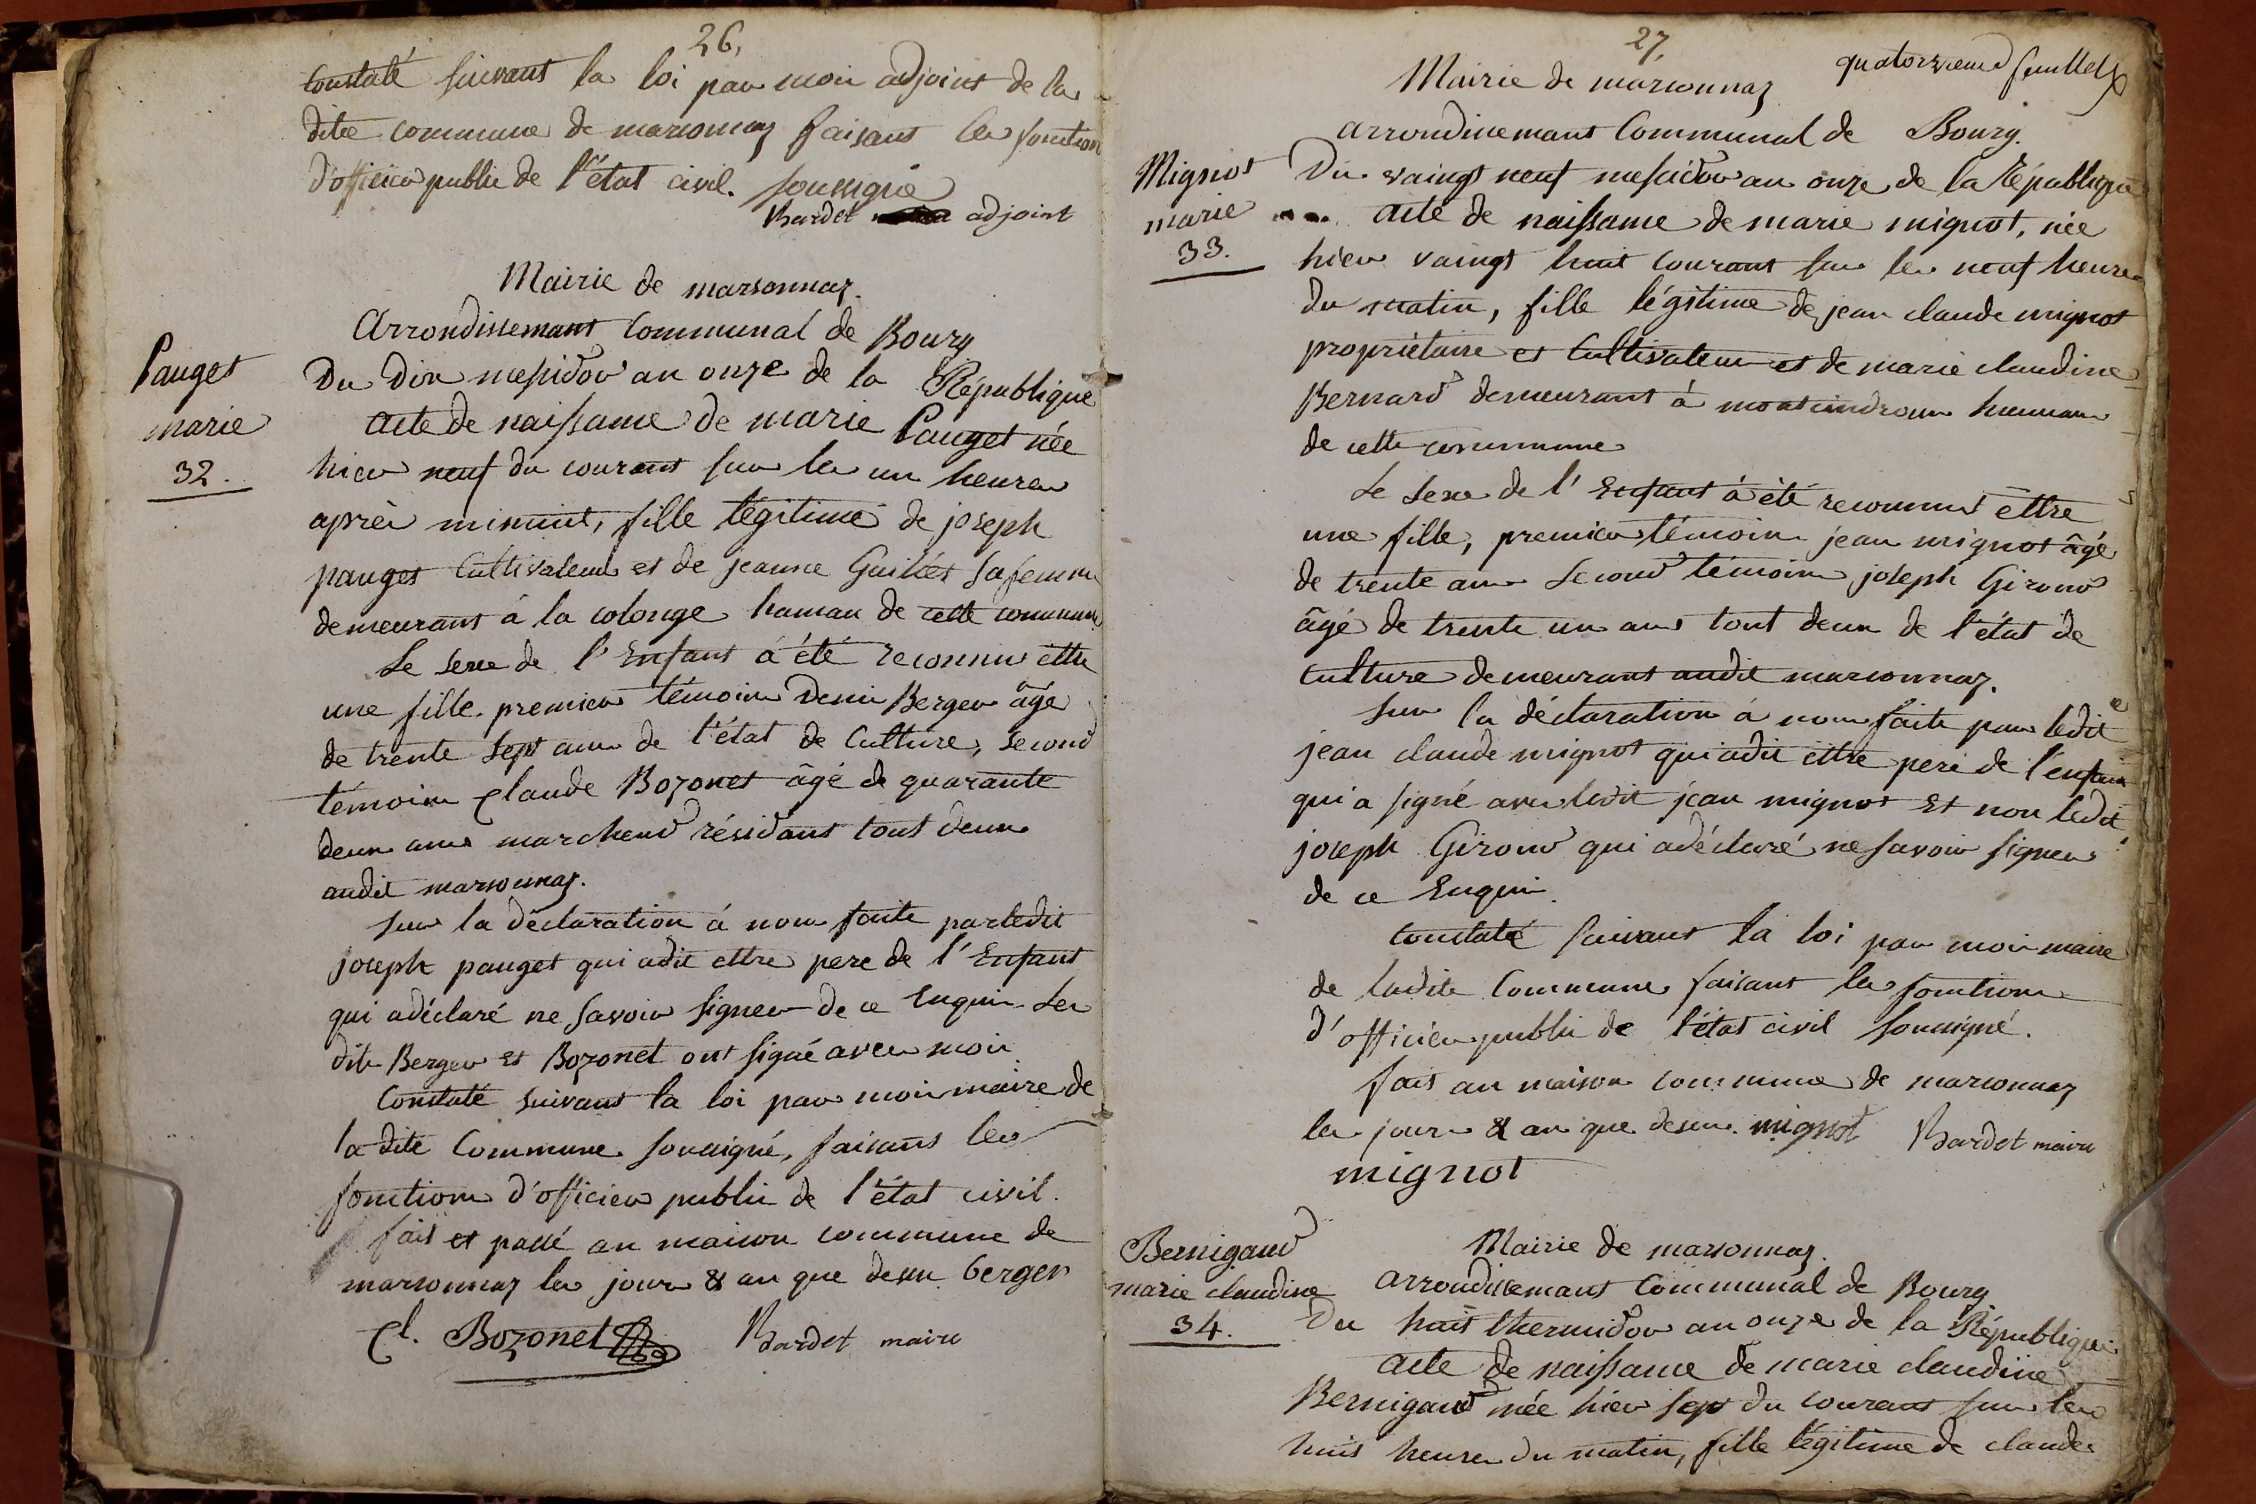 26,
Constaté suivant la loi par moi adjoint de la
dite commune de marsonnaz faisant les fonction
d'officier public de l'état civil. soussigné
Bardet adjoint
Mairie de marsonnaz.
Arrondissemant Communal de Bourg
Pauget
marie
32.
Du dix messidor an onze de la République
acte de naissance de marie Pauget née
hier neuf du courant sur les un heures
après minuit, fille légitime de joseph
pauget Cultivateur et de jeanne Guillet sa femme
demeurant à la colonge hamau de cette commune
Le sexe de l'Enfant à été reconnu ettre
une fille. premier témoin Denis Berger âgé
de trente sept ans de l'état de Culture, second
témoin Claude Bozonet âgé de quarante
deux ans marchend résidant tout deux
audit marsonnaz.
sur la déclaration à nous faite par ledit
joseph pauget qui a dit ettre pere de l'Enfant
qui a déclaré ne savoir signer de ce Enquis Les
dits Berger et Bozonet ont signé avec moi
Constaté suivant la loi par moi maire de
la dite Commune soussigné, faisant les
fonctions d'officier public de l'état civil.
fait et passé an maison commune de
marsonnaz les jours & an que dessu berger
Cl. Bozonet Bardet maire
27,
quatorzieme feuillet
Mairie de marsonnaz
arrondissemant Communal de Bourg.
Mignot
marie
33.
Du vaingt neuf messidor an onze de la République
acte de naissance de marie mignot, née
hier vaingt huit courant sur les neuf heures
du matin, fille légitime de jean claude mignot
propriétaire et Cultivateur et de marie claudine
Bernard demeurant à hameau
de cette commune
Le sexe de l'Enfant à été reconnu ettre
une fille, premier témoin jean mignot âgé
de trente ans second témoin joseph Giroud
âgé de trente un ans tout deux de l'état de
culture demeurant audit marsonnaz.
sur la déclaration à nous faite par ledit
jean claude mignot qui a dit ettre pere de l'enfant
qui a signé avec ledit jean mignot Et non ledit
joseph Giroud qui a déclaré ne savoir signer
de ce Enquis.
constaté suivant la loi par moi maire
de ladite Commune faisant les fonctions
d'officier public de l'état civil soussigné.
fait an maison commune de marsonnaz
les jours & an que dessus. mignot Bardet maire
mignot
Bernigaud
marie claudine
34.
Mairie de marsonnaz.
arrondissemant Communal de Bourg
Du huit thermidor an onze de la République
acte de naissance de marie claudine
Bernigaud née hier sept du courant sur les
huit heures du matin, fille légitime de claude